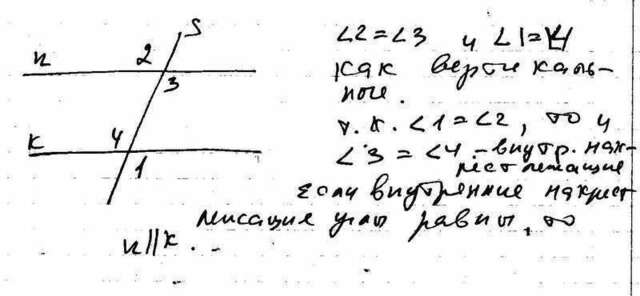 S
n
2
3
k
4
1
∠2=∠3 и ∠1=∠4
как вертикаль-
ные.
т.к. ∠1=∠2, то и
∠3=∠4 - внутр. нак-
рест лежащие
Если внутренние накрест
лежащие углы равны, то
n||k.